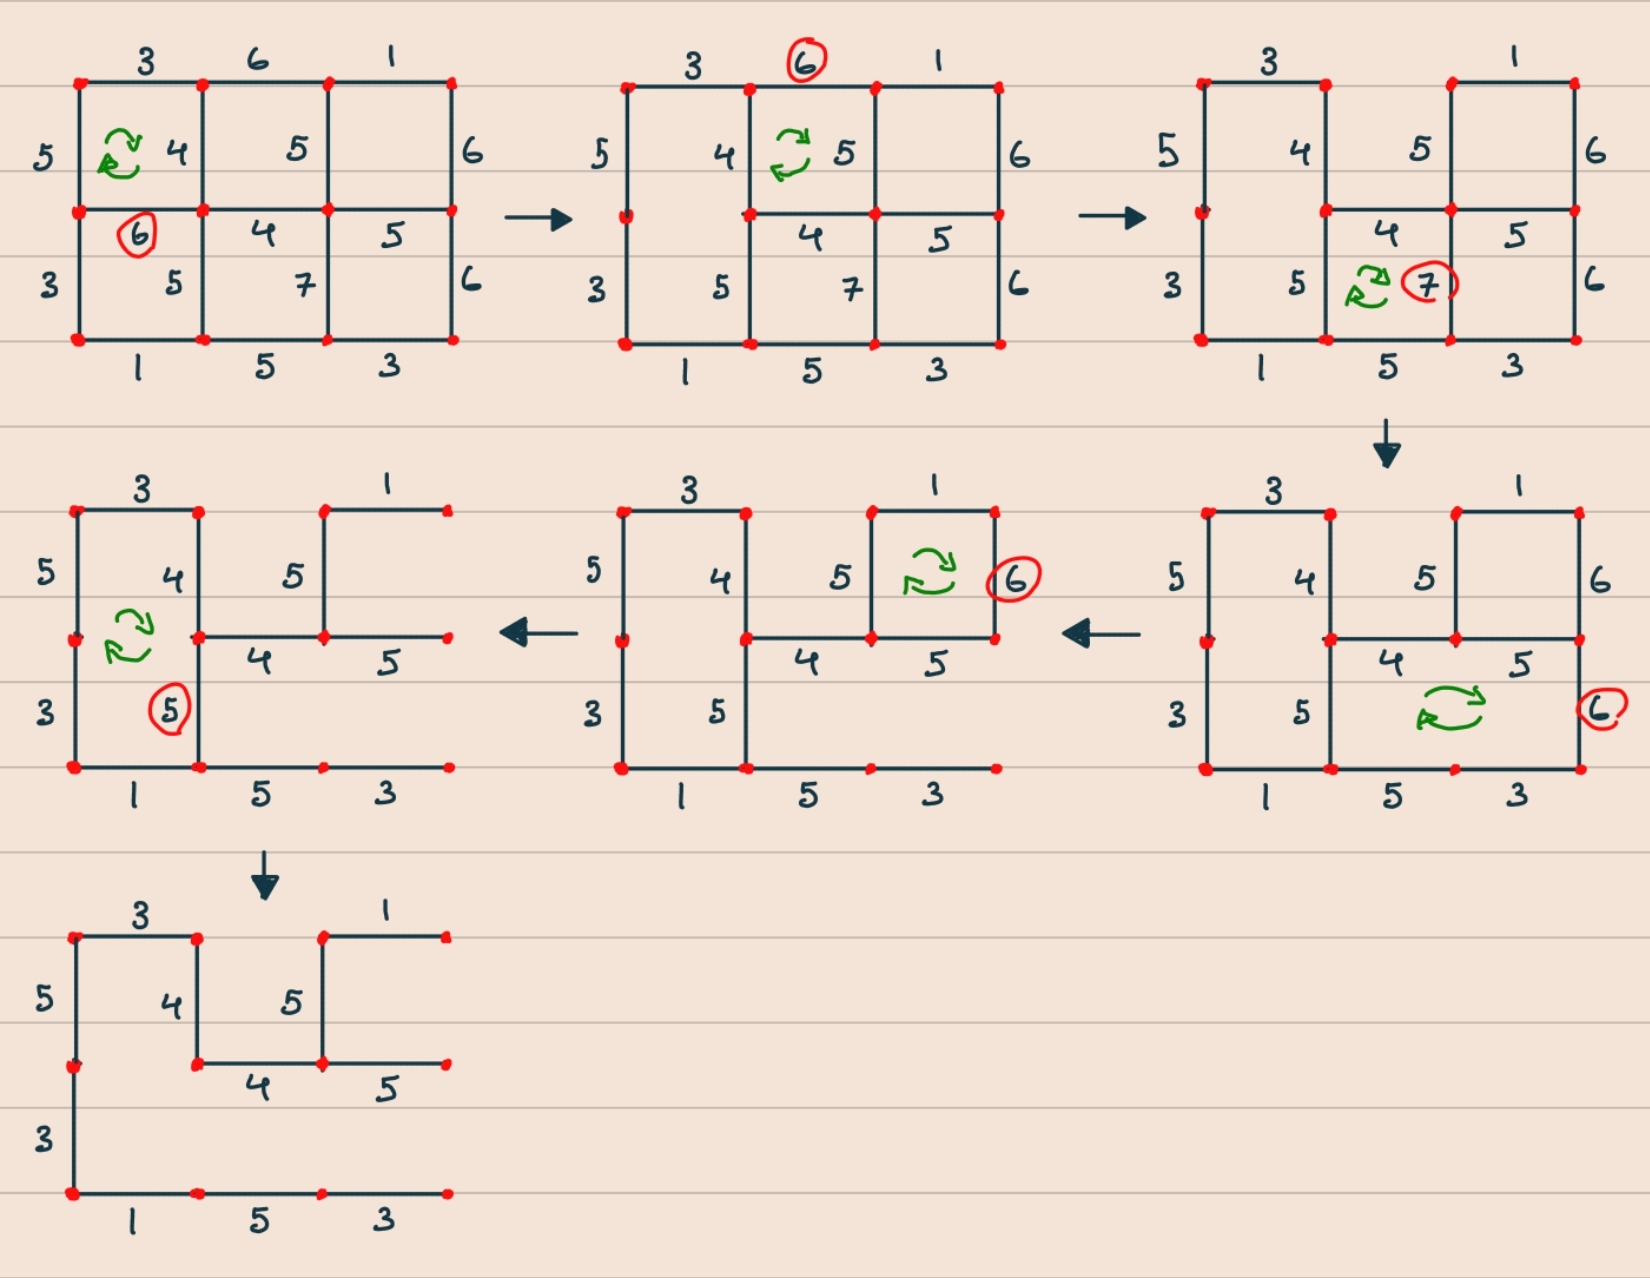 3 6 1
5 4 5 6
6 4 5
3 5 7 6
1 5 3
3 6 1
5 4 5 6
4 5
3 5 7 6
1 5 3
3 1
5 4 5 6
4 5
3 5 7 6
1 5 3
3 1
5 4 5 6
4 5
3 5 6
1 5 3
3 1
5 4 5 6
4 5
3 5
1 5 3
3 1
5 4 5
4 5
3 5
1 5 3
3 1
5 4 5
4 5
3
1 5 3